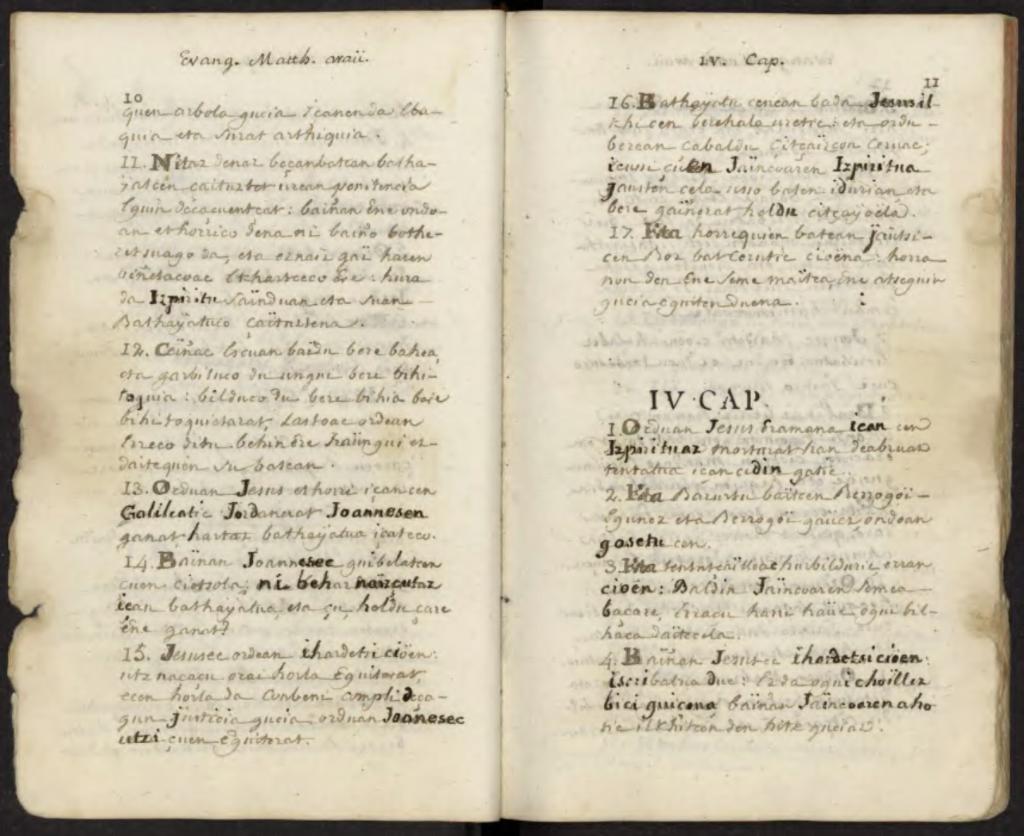 Evang. Matth. araü.
10
quen arbola gucia içanen da Eba-
quia eta surat arthiquia.
11. Nitaz denaz beçanbatean batha-
jatcen caituztet urean penitencia
Eguin deçaçuentçat: bainan Ene ondo-
an ethorrico dena ni baino bothe-
retsuago da, eta eznaiz gai haren
çinetacoac Ekhartceco Ere: hura
da Izpiritu Sainduan eta suan
Bathayatuco çaituztena.
12. Ceinac Escuan baidu bere bahea
eta garbituco du ungui bere bihi-
toquia: bilduco du bere bihia bere
bihitoquietarat, Lastoac ordean
Erreco ditu behin Ere Iraüngui ez-
daitequen su batean.
13. Orduan Jesus ethorri içan cen
Galileatic Jordanerat Joannesen
ganat hartaz bathayatua içateco.
14. Bainan Joannesec guibelatcen
çuen ciotsola, ni behar naizcutaz
ican bathayatua, eta çu holdu çare
ene ganat?
15. Jesusec ordean ihardetsi cioën:
utz naçaçu orai horla Eguiterat
ecen horla da Conbeni complideça-
gun justicia gucia, orduan Joanesec
utzi çuen Eguiterat.
IV. Cap.
11
16. Bathayatu cenean bada Jesus il-
khi cen berehala uretic: eta ordu-
berean çabaldu citçaizcon Ceruac;
icusi çuen Jaincoaren Izpiritua
Jausten cela usso baten idurian eta
bere gainerat heldu citçayoëla.
17. Eta horrequien batean jautsi-
cen Boz bat Cerutic cioëna: horra
non den Ene Seme maitea, Ene atseguin
gucia eguiten duena.
IV·CAP.
1. Orduan Jesus Eramana ican cen
Izpirituaz morturat han deabruaz
tentatua ican cedin gatic.
2. Eta Barurtu baitcen Berrogoi-
Egunez eta Berrogoi gauez, ondoan
gosetu cen.
3. Eta tentatcaillea hurbilduric erran
cioën: Baldin Jaincoaren Semea
baçare, Erraçu harri hauc ogui bil-
haca daitecela.
4. Bainan Jesusec ihardetsi cioen:
iscribatua due: Ezda ogui choillez
bici guiçona, bainan Jaincoaren aho-
tic ilkhitcen den hitz guciaz.